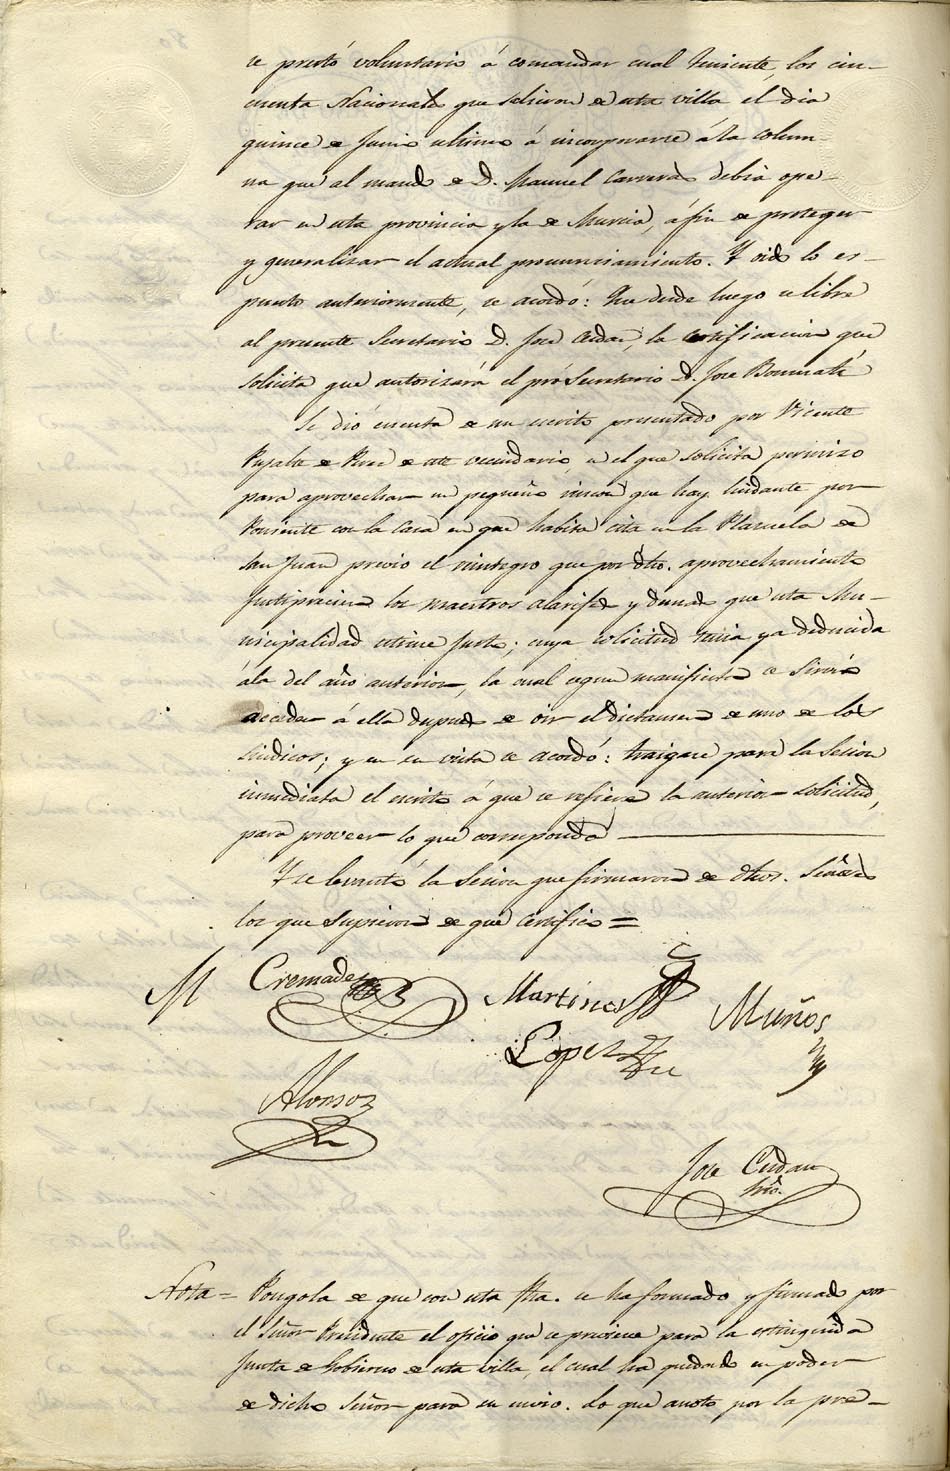 se prestó voluntario á comandar cual Teniente, los cin-
cuenta Nacionales que salieron de esta villa el dia
quince de Junio ultimo á incorporarse á la colum-
na que al mando de D. Manuel Carreras debia ope-
rar en esta provincia y la de Murcia, á fin de proteger
y generalizar el actual pronunciamiento. Y oido lo es-
puesto anteriormente, se acordó: Que desde luego se libre
al presente Secretario D. Jose Cerdan, la certificacion que
solicita que autorizará el pró Secretario D. Jose
Se dió cuenta de un escrito presentado por Vicente
Pujalte de Perez de este vecindario, en el que solicita permiso
para aprovechar un pequeño rincon que hay lindante por
Poniente con la casa en que habita cita en la Plazuela de
San Juan previo el reintegro que por dho. aprovechamiento
justiprecien los maestros alarifes y demas que esta Mu-
nicipalidad estime justo; cuya solicitud tenia ya deducida
á la del año anterior, la cual segun manifiesta se sirvió
acceder á ella despues de oir el dictamen de uno de los
Sindicos; y en su vista se acordó: traigase para la Sesion
inmediata el escrito á que se refiere la anterior solicitud,
para proveer lo que corresponda
Y se levantó la Sesion que firmaron de dhos. Señores
los que supieron de que certifico =
M Cremades Martinez Muños
Lopez
Alonso
Jose Cerdan
Srio.
Nota = Pongola de que con esta fha. se ha formado y firmado por
el Señor Presidente el oficio que se previene para la estinguida
Junta de Gobierno de esta villa, el cual ha quedado en poder
de dicho Señor para su envio. Lo que anoto por la pre-